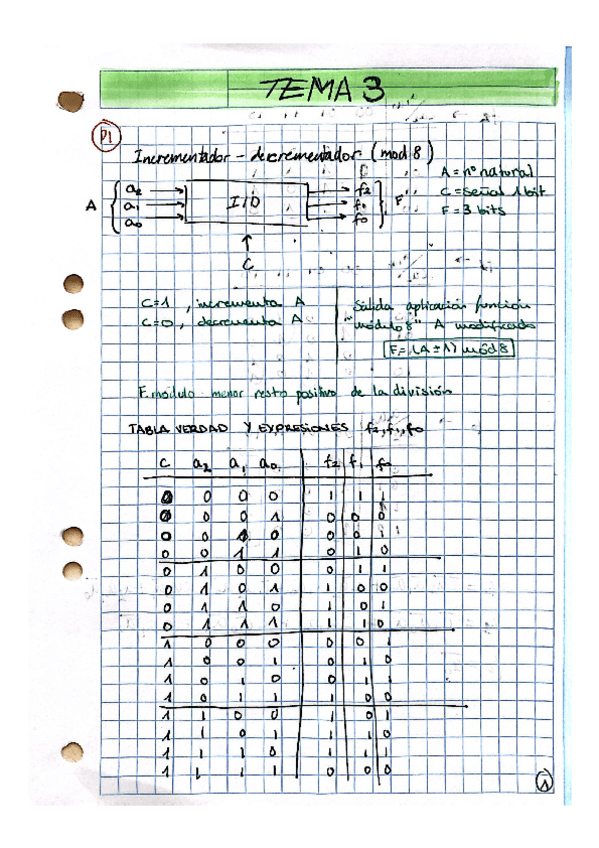 TEMA 3
P1
Incrementador - decrementador (mod 8)
A = nº natural
C = señal 1 bit
F = 3 bits
A { a2 a1 a0
I/D
f2 f1 f0 } F
C
C=1, incrementa A
C=0, decrementa A
Salida aplicación función
"módulo 8" A modificado
F = (A ± 1) mód 8
F. modulo menor resto positivo de la división
TABLA VERDAD Y EXPRESIONES f2, f1, f0
C a2 a1 a0 f2 f1 f0
0 0 0 0 1 1 1
0 0 0 1 0 0 0
0 0 1 0 0 0 1
0 0 1 1 0 1 0
0 1 0 0 0 1 1
0 1 0 1 1 0 0
0 1 1 0 1 0 1
0 1 1 1 1 1 0
1 0 0 0 0 0 1
1 0 0 1 0 1 0
1 0 1 0 0 1 1
1 0 1 1 1 0 0
1 1 0 0 1 0 1
1 1 0 1 1 1 0
1 1 1 0 1 1 1
1 1 1 1 0 0 0
1